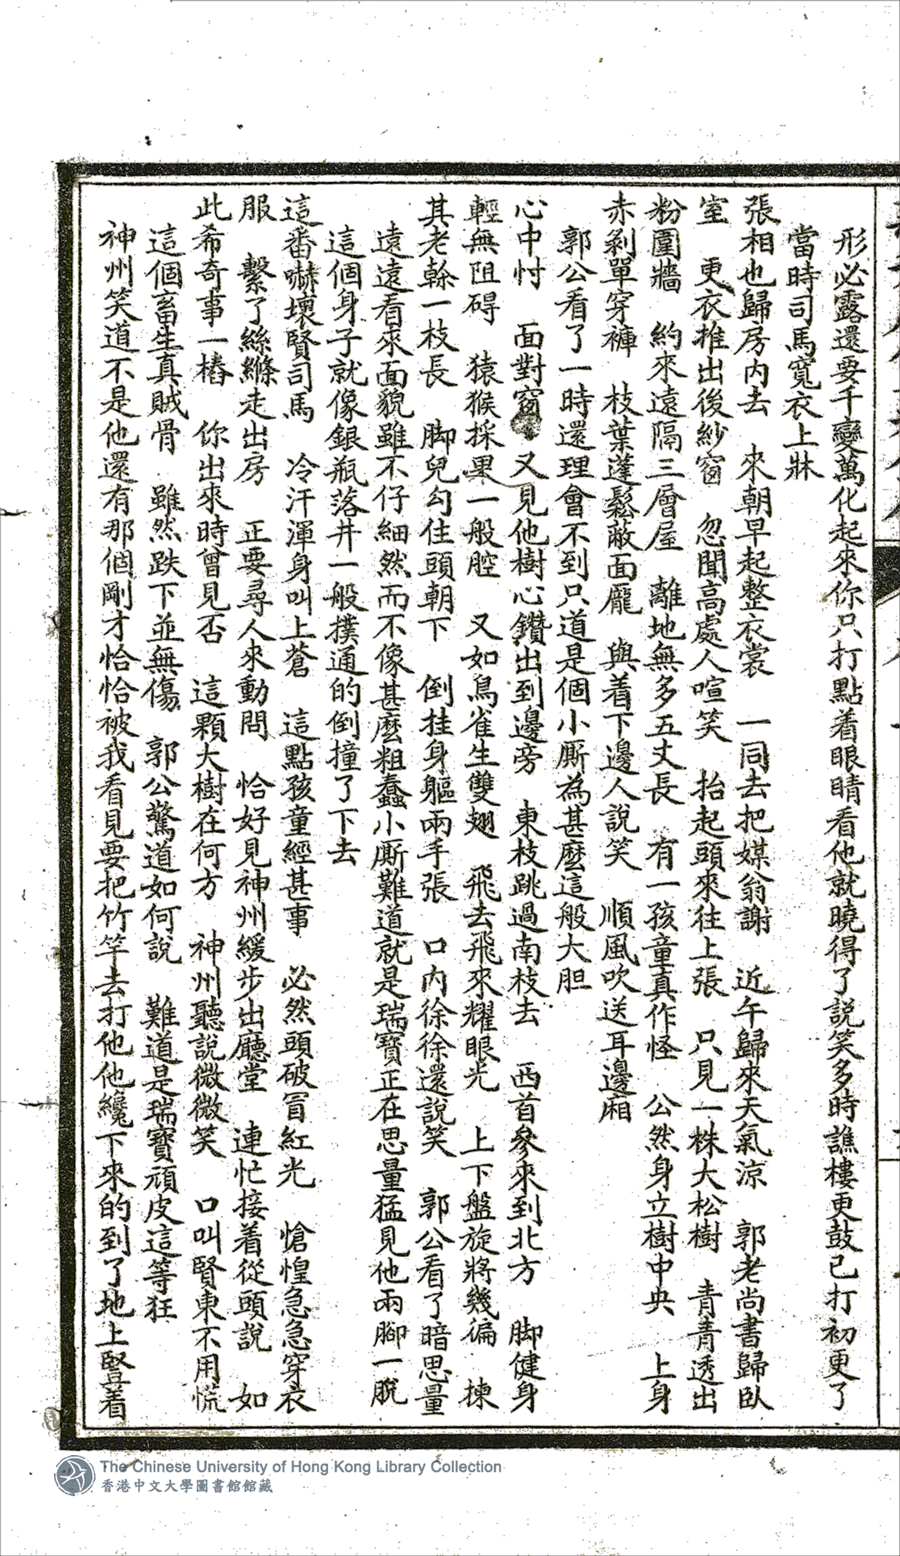 形必露還要千變萬化起來你只打點着眼睛看他就曉得了說笑多時譙樓更鼓已打初更了
當時司馬寬衣上牀
張相也歸房內去　來朝早起整衣裳　一同去把媒翁謝　近午歸來天氣涼　郭老尚書歸臥
室　更衣推出後紗窗　忽聞高處人喧笑　抬起頭來往上張　只見一株大松樹　青青透出
粉圍牆　約來遠隔三層屋　離地無多五丈長　有一孩童真作怪　公然身立樹中央　上身
赤剝單穿褲　枝葉蓬鬆蔽面龐　與着下邊人說笑　順風吹送耳邊廂
郭公看了一時還理會不到只道是個小厮為甚麼這般大胆
心中忖　面對窗　又見他樹心鑽出到邊旁　東枝跳過南枝去　西首參來到北方　脚健身
輕無阻碍　猿猴採果一般腔　又如鳥雀生雙翅　飛去飛來耀眼光　上下盤旋將幾徧　揀
其老榦一枝長　脚兒勾住頭朝下　倒挂身軀兩手張　口內徐徐還說笑　郭公看了暗思量
遠遠看來面貌雖不仔細然而不像甚麼粗蠢小厮難道就是瑞寶正在思量猛見他兩腳一脫
這個身子就像銀瓶落井一般撲通的倒撞了下去
這番嚇壞賢司馬　冷汗渾身叫上蒼　這點孩童經甚事　必然頭破冒紅光　愴惶急急穿衣
服　繫了絲縧走出房　正要尋人來動問　恰好見神州緩步出廳堂　連忙接着從頭說　如
此希奇事一樁　你出來時曾見否　這顆大樹在何方　神州聽說微微笑　口叫賢東不用慌
這個畜生真賊骨　雖然跌下並無傷　郭公驚道如何說　難道是瑞寶頑皮這等狂
神州笑道不是他還有那個剛才恰恰被我看見要把竹竿去打他他纔下來的到了地上豎着
The Chinese University of Hong Kong Library Collection
香港中文大學圖書館館藏